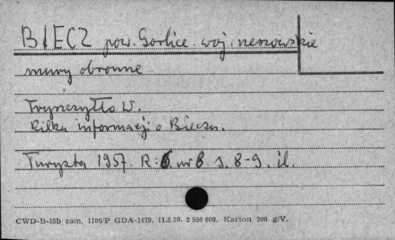 BIECZ pow. Gorlice. woj. rzeszowskie
mury obronne
Frynczyłło W.
Kilka informacji o Bieczu.
Turysta 1957. R: 6. nr 8 s. 8-9. il.
CWD-B-15b zam. 1106/P GDA-1479. 11.3.59. 2 550 000. Karton 200 g/V.